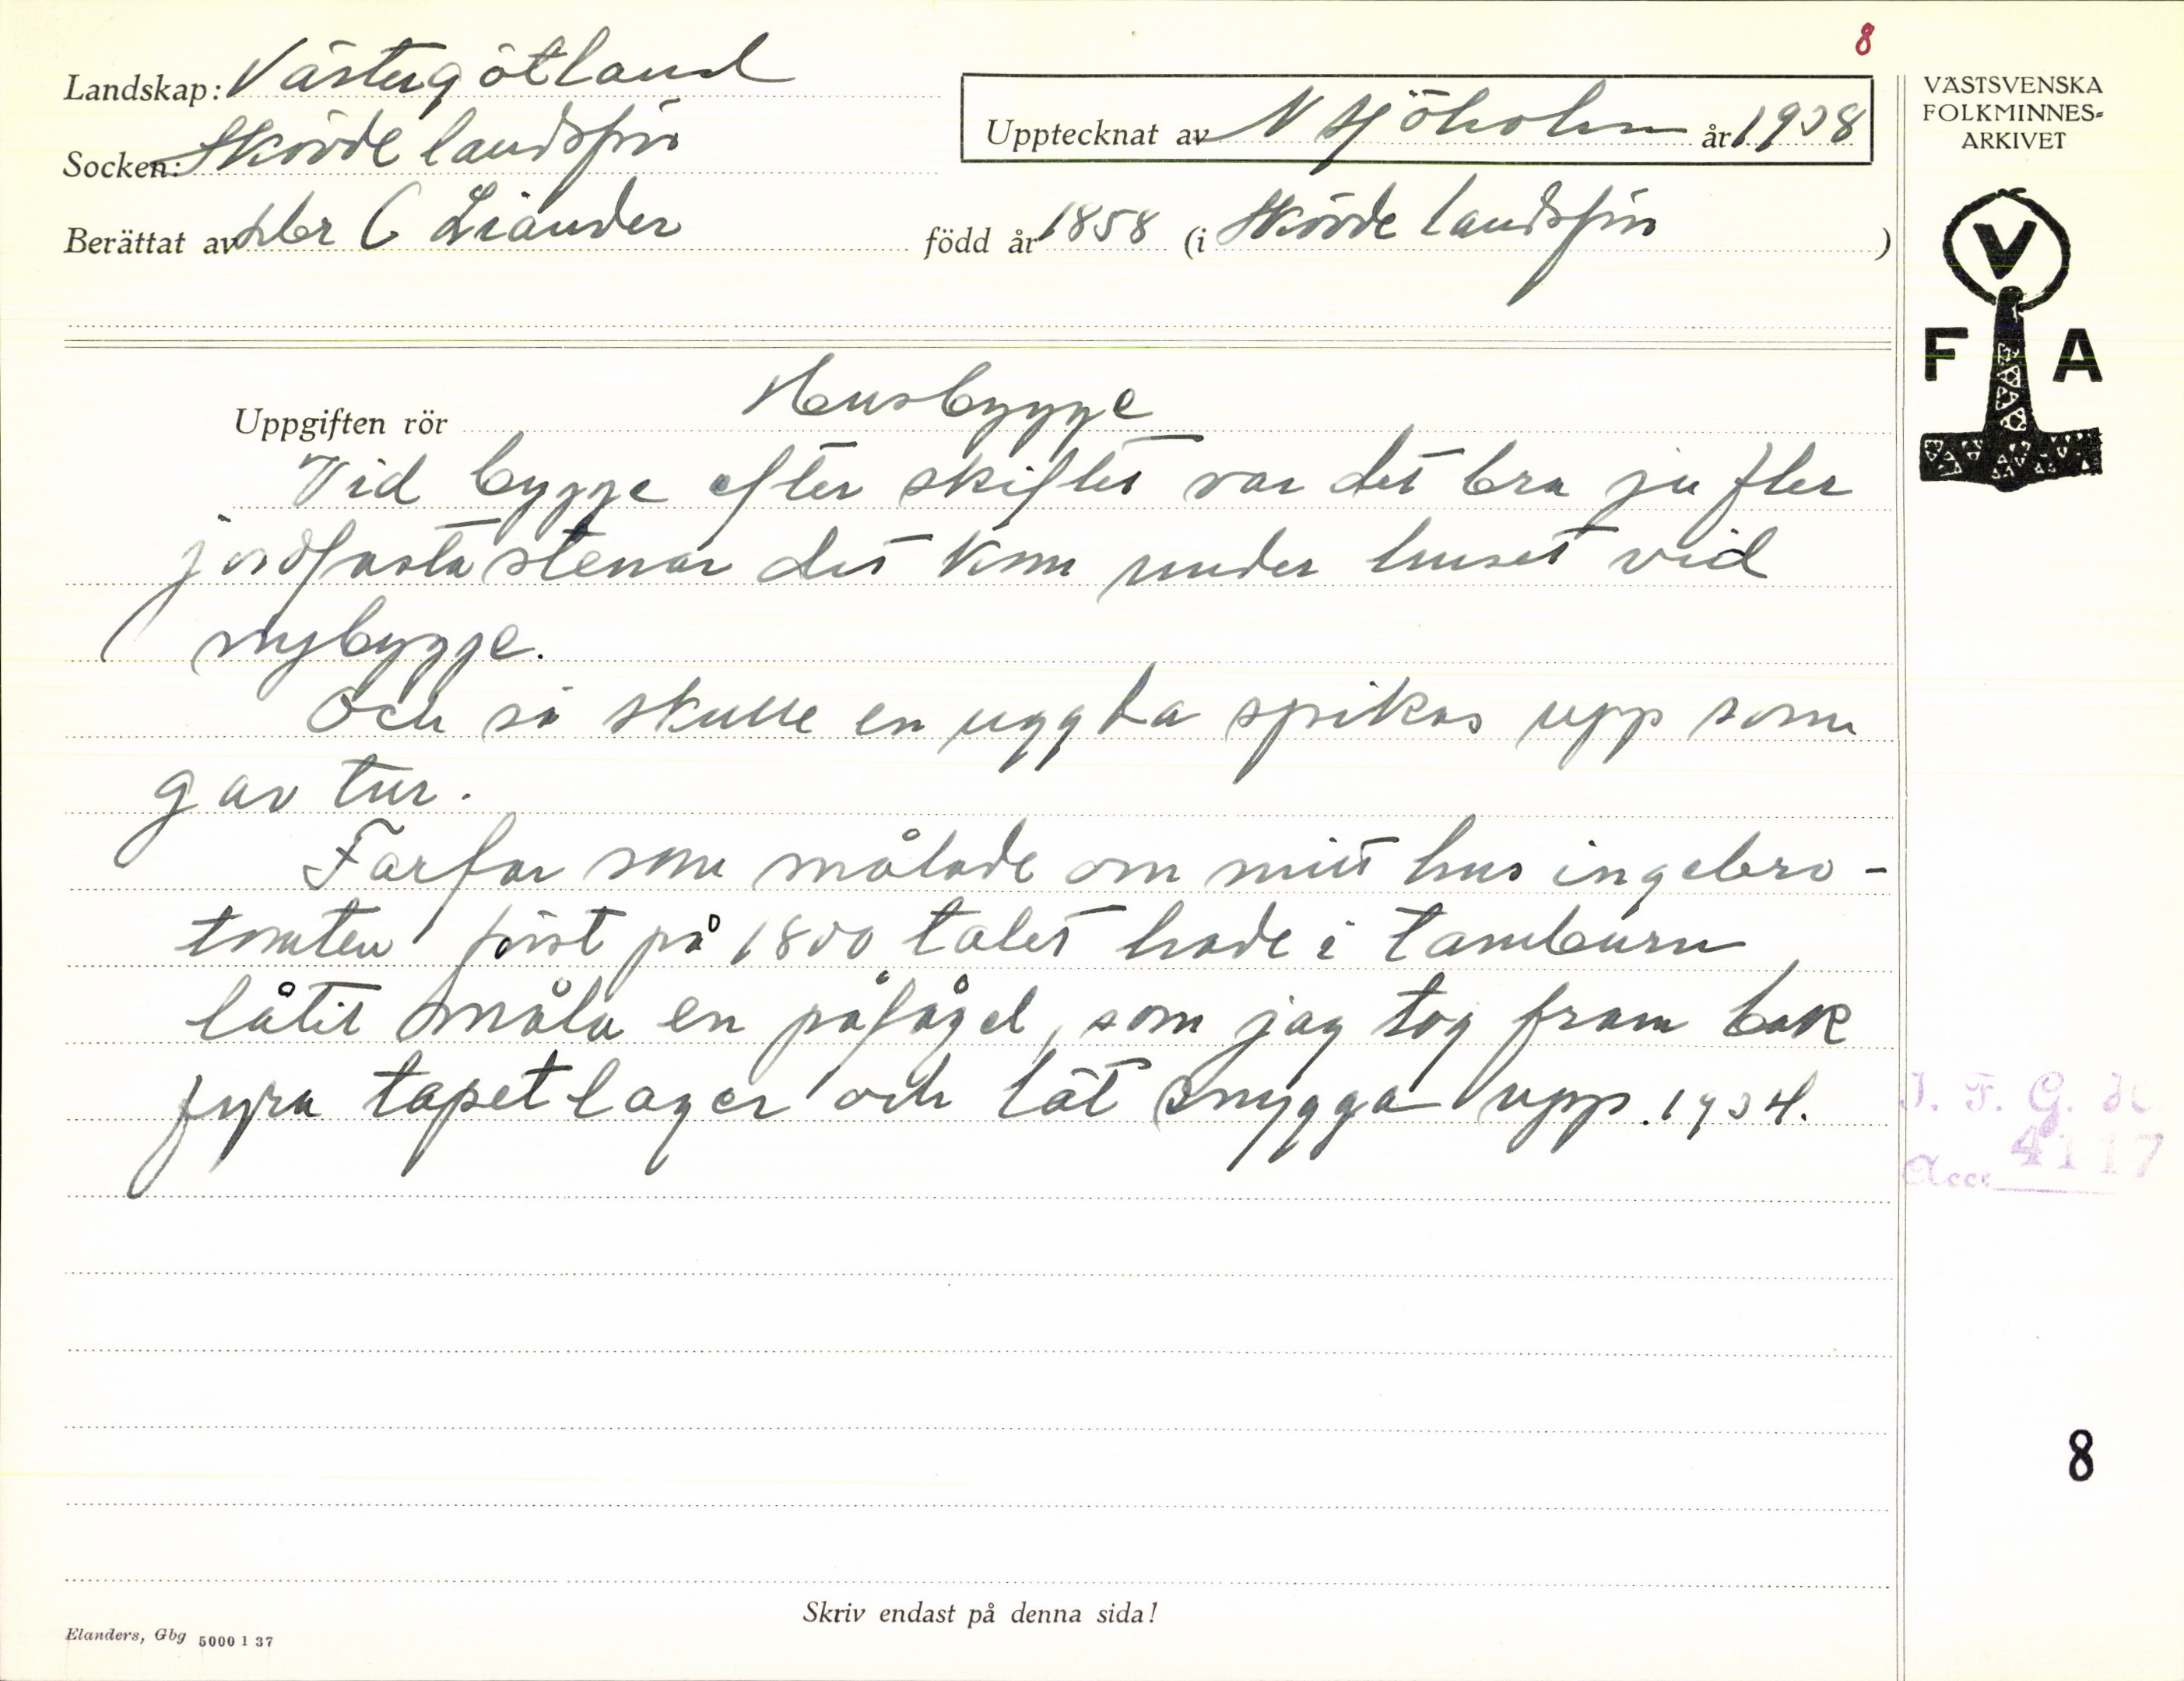 8
Landskap: Västergötland
Socken: Skövde landsförs
Upptecknat av N Sjöholm år 1938
VÄSTSVENSKA
FOLKMINNES=
ARKIVET
Berättat av Hbr C Liander född år 1858 (i Skövde landsförs)
V
F A
Uppgiften rör Husbygge
Vid bygge efter skiftet var det bra ju fler
jordfasta stenar det kom under huset vid
nybygge.
Och så skulle en uggla spikas upp som
gav tur.
Farfar som målade om mitt hus ingebro-
tomten först på 1800 talet hade i tamburn
låtit måla en påfågel, som jag tog fram bak
fyra tapetlager och lät snygga upp. 1934.
I. F. G. H
Acc. 4117
8
Skriv endast på denna sida!
Elanders, Gbg 5000 1 37